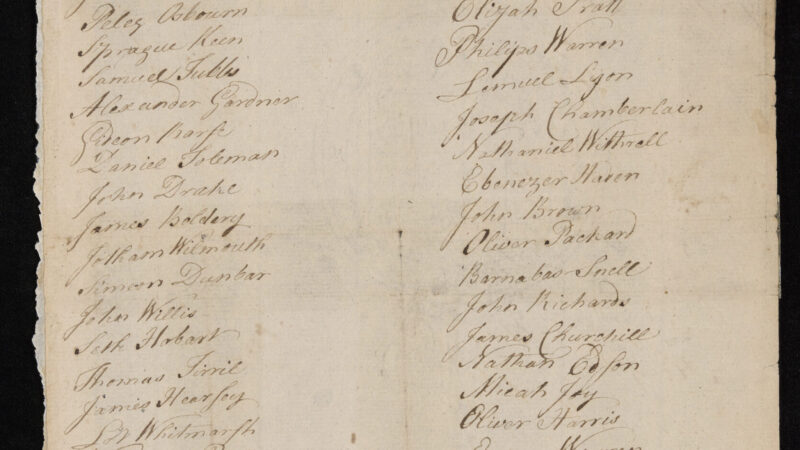 Peleg Osbourn
Sprague Keen
Samuel Tubbs
Alexander Gardner
Gideon
Daniel Soleman
John Drake
James Boldery
Jotham Wilmouth
Simeon Dunbar
John Willis
Seth Hobart
Thomas Tirril
James Hearsey
Lot Whitmarsh
Elijah Pratt
Philips Warren
Lemuel Lyon
Joseph Chamberlain
Nathaniel Withrell
Ebenezer Haven
John Brown
Oliver Packard
Barnabas Snell
John Richards
James Churchill
Nathan Edson
Micah Joy
Oliver Harris